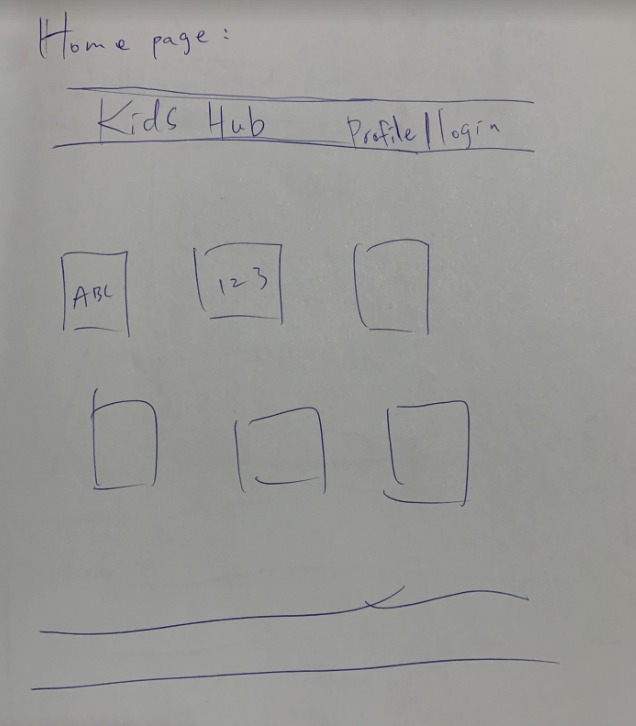 Home page:
Kids Hub Profile/login
ABC 123